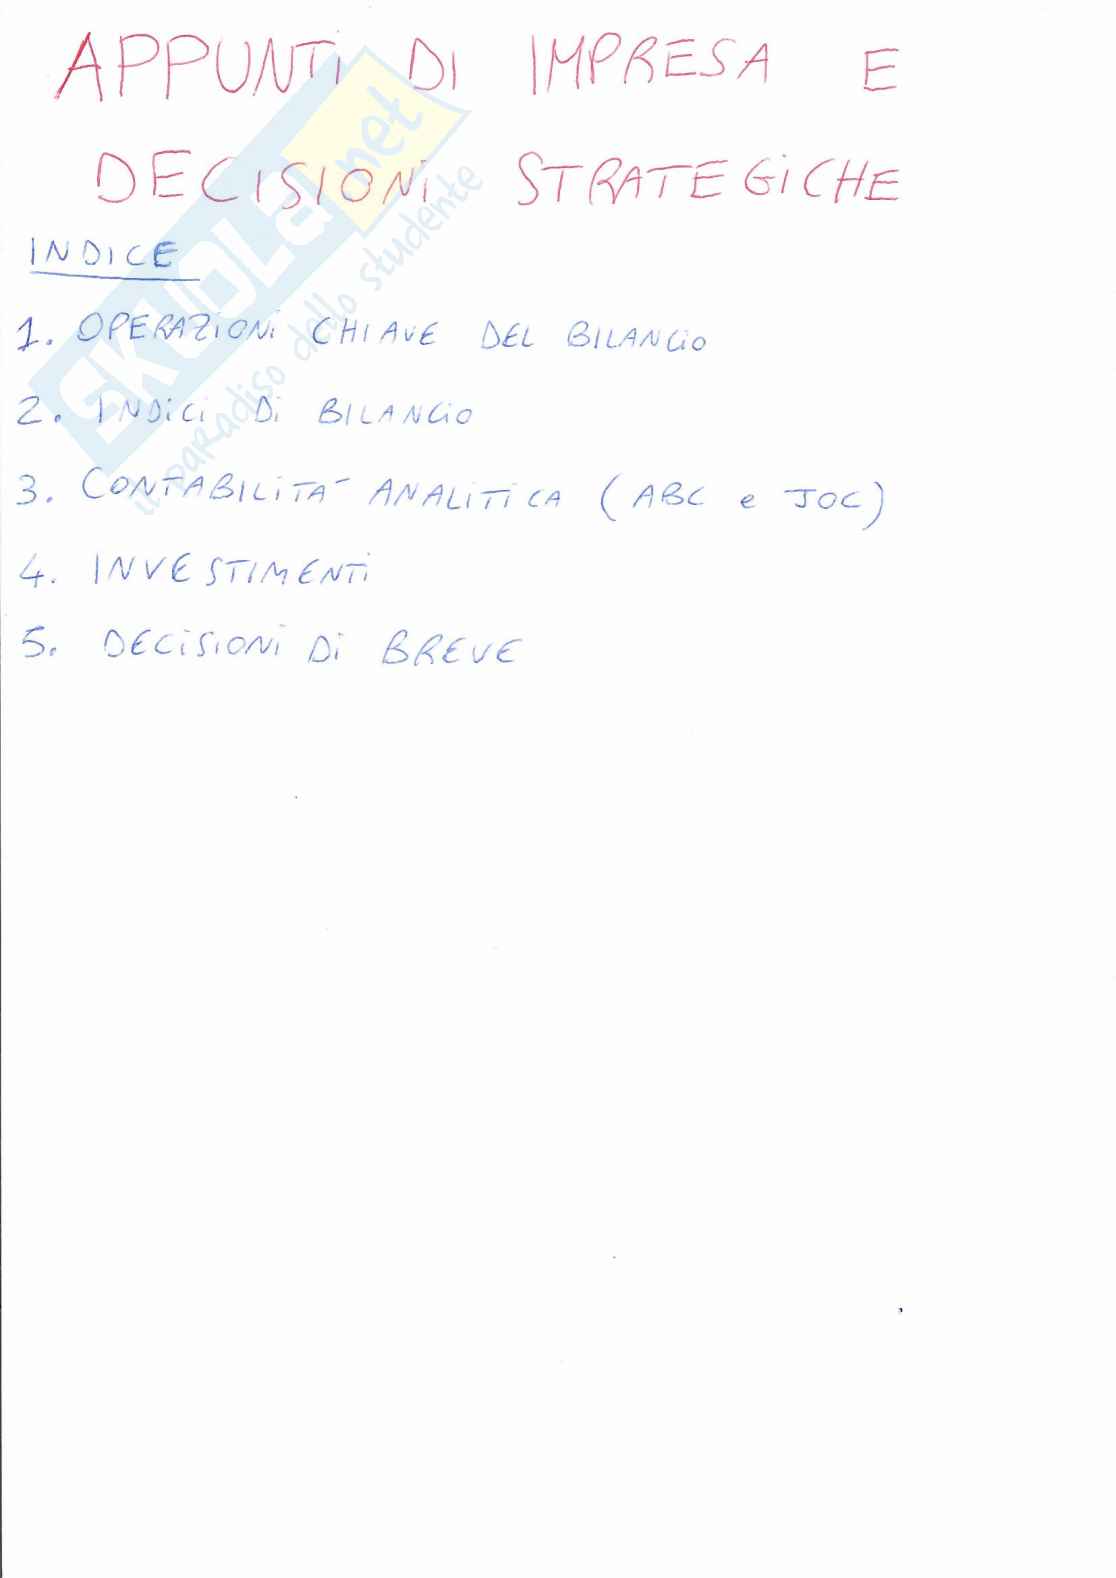 APPUNTI DI IMPRESA E
DECISIONI STRATEGICHE
INDICE
1. OPERAZIONI CHIAVE DEL BILANCIO
2. INDICI DI BILANCIO
3. CONTABILITA' ANALITICA (ABC e JOC)
4. INVESTIMENTI
5. DECISIONI DI BREVE
SKUOLA.net
il paradiso dello studente